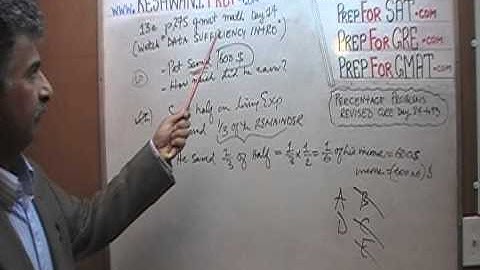 WWW. KESHWANI PREP.COM
13e p275 gmat math Day 24
(Watch "DATA SUFFICIENCY INTRO."
- Pat Saved 600 $
- How much did he earn?
half on living Exp
1/3 of the REMAINDER
He saved 2/3 of half = 1/3 × 1/2 = 1/6 of his income = 600 $
income = (600×6) $
A B
D C
E
PREP FOR SAT.COM
PREP FOR GRE.COM
PREP FOR GMAT.COM
PERCENTAGE PROBLEMS
REVISED GRE DAY